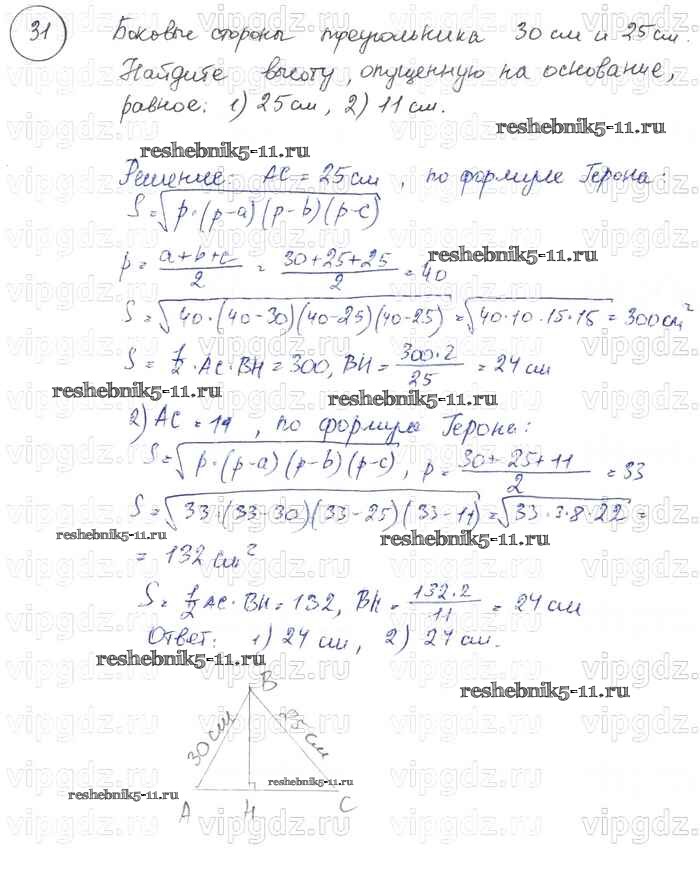 31 Боковые стороны треугольника 30 см и 25 см.
Найдите высоту, опущенную на основание,
равное: 1) 25 см, 2) 11 см.
reshebnik5-11.ru
reshebnik5-11.ru
Решение: AC = 25 см, по формуле Герона:
S = √(p·(p-a)(p-b)(p-c))
reshebnik5-11.ru
p = (a+b+c)/2 = (30+25+25)/2 = 40
S = √(40·(40-30)(40-25)(40-25)) = √(40·10·15·15) = 300 см²
S = 1/2 · AC · BH = 300, BH = (300·2)/25 = 24 см
reshebnik5-11.ru
reshebnik5-11.ru
2) AC = 11, по формуле Герона:
S = √(p·(p-a)(p-b)(p-c)), p = (30+25+11)/2 = 33
S = √(33·(33-30)(33-25)(33-11)) = √(33·3·8·22) =
reshebnik5-11.ru
reshebnik5-11.ru
= 132 см²
S = 1/2 AC · BH = 132, BH = (132·2)/11 = 24 см
Ответ: 1) 24 см, 2) 24 см.
reshebnik5-11.ru
reshebnik5-11.ru
B
30 см
25 см
reshebnik5-11.ru
reshebnik5-11.ru
A
H
C
vipgdz.ru